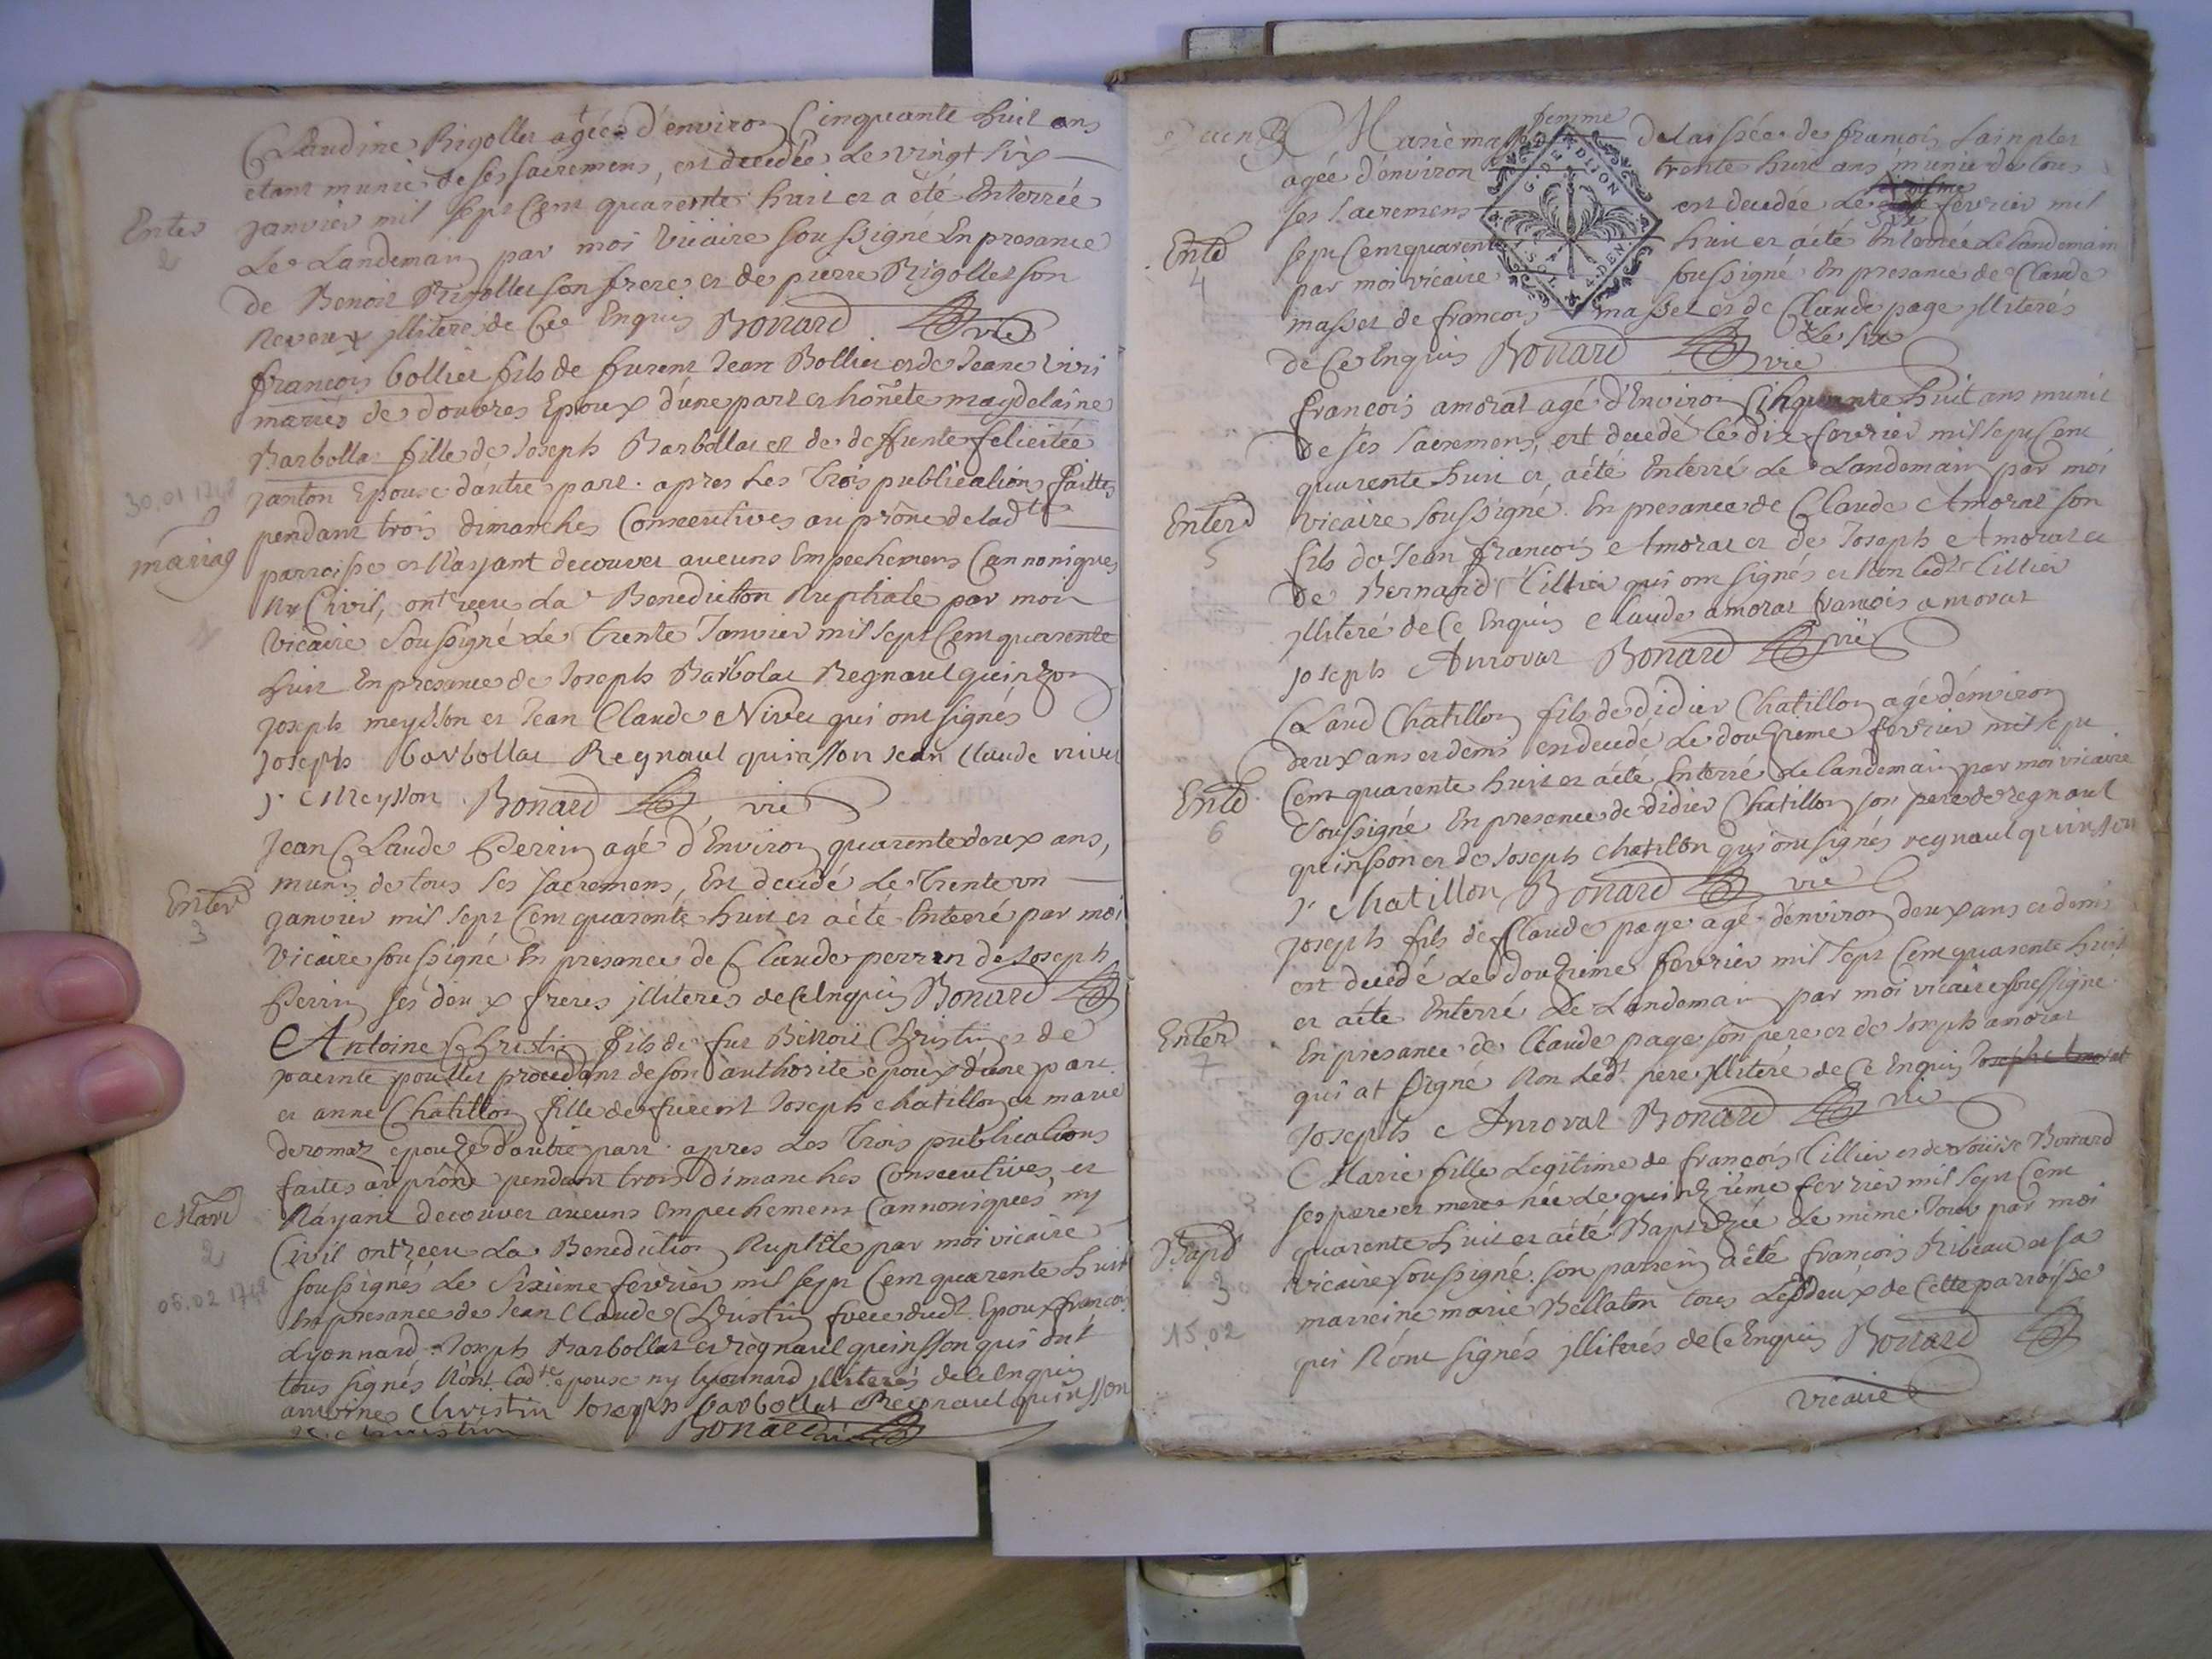 Claudine Rigollet agée d'environ Cinquante huit ans
etant munie de ses sacremens, est decedée le vingt six
Enter janvier mil sept Cent quarente huit et a été Enterrée
2
Le Landemain par moi Vicaire soussigné En presance
de Benoit Rigollet son frere et de pierre Rigollet son
neveux illiteré de Ce Enquis Bonard vic
francois bollier fils de furent Jean Bollier et de Jeane
mariés de douvres Epoux d'une part et honéte magdelaine
Barbollat fille de Joseph Barbollat et de deffunte felicitée
janton Epouse d'autre part. apres les trois publications faittes
30.01 1748
pendant trois dimanches Consecutives au prône de ladte
mariag
parroisse et n'ayant decouver aucuns Empechemens Cannoniques
ny Civil, ont reçu la Benediction Nuptiale par moi
Vicaire soussigné le trente Janvier mil sept Cent quarente
huit En presance de Joseph Barbolat Regnaul quinson
joseph meysson et Jean Claude Nivet qui ont signés
joseph barbollat Regnaul quinsson jean claude nivet
j. Meysson Bonard vic
Jean Claude Perrin agé d'Environ quarente deux ans,
munis de tous ses sacremens, Est decedé le trente un
Enter janvier mil sept Cent quarente huit et a été Enterré par moi
3
Vicaire soussigné En presance de Claude perrin de Joseph
Perrin ses deux freres illiterés de Ce Enquis Bonard
Antoine Christin fils de fut Benoit Christin et de
poullet procedant de son authorité époux d'une part
et anne Chatillon fille de furent Joseph chatillon et marie
deromaz epouze d'autre part. apres les trois publications
faites au prône pendant trois Dimanches Consecutives, et
Mard N'ayant decouver aucuns empechemens Cannoniques, ny
2
Civil ont reçu la Benediction Nuptile par moi vicaire
soussignés le sixieme fevrier mil sept Cent quarente huit
06.02 1748
En presance de Jean Claude Christin frere dudt Epoux francois
Lyonnard Joseph Barbollat et regnaul quinsson qui ont
tous signés Non ladte epouse ny lyonnard illiterés de Ce Enquis
antoine Christin Joseph barbollat Regnaul quinsson
j. c christin Bonard vic
femme
Marie masset delaissée de francois
agée d'environ trente huit ans munie de tous
ses sacremens est decedée le fevrier mil
Enterd sept Cent quarente huit et a été Enterrée le landemain
4
par moi vicaire soussigné En presance de Claude
masset de francois masset et de Claude page illiterés
G. DE DIJON
de Ce Enquis Bonard vic
francois amorat agé d'Environ Cinquante huit ans munit
de ses sacremens, est decedé le dix fevrier mil sept Cent
quarente huit et a été Enterré le Landemain par moi
Enterd vicaire soussigné. En presance de Claude Amorat son
5
fils de Jean francois Amorat et de Joseph Amorat et
de Bernard tillier qui ont signés et Non ledt tillier
illiteré de Ce Enquis claude amorat francois amorat
joseph Amorat Bonard vic
Claud Chatillon fils de didier Chatillon agé d'environ
deux ans et demi est decedé le douzieme fevrier mil sept
Enterd Cent quarente huit et a été Enterré le landemain par moi vicaire
6
soussigné En presance de didier Chatillon son pere de regnaul
quinsson et de Joseph chatillon qui ont signés regnaul quinsson
j. chatillon Bonard vic
joseph fils de Claude page agé d'environ deux ans et demi
est decedé le douzieme fevrier mil sept Cent quarente huit
et a été Enterré le Landemain par moi vicaire soussigné
Enter En presance de Claude page son pere et de Joseph amorat
7
qui at signé Non ledt pere illiteré de Ce Enquis
Joseph Amorat Bonard vic
Marie fille Legitime de francois tillier et de Bonard
ses pere et mere née le quinzième fevrier mil sept Cent
quarente huit et a été Baptizée le même Jour par moi
Bapt
3
vicaire soussigné. son parrein a été francois Ribeau et sa
marreine marie Bellaton tous les deux de Cette parroisse
15.02
qui N'ont signés illiterés de Ce Enquis Bonard
vicaire